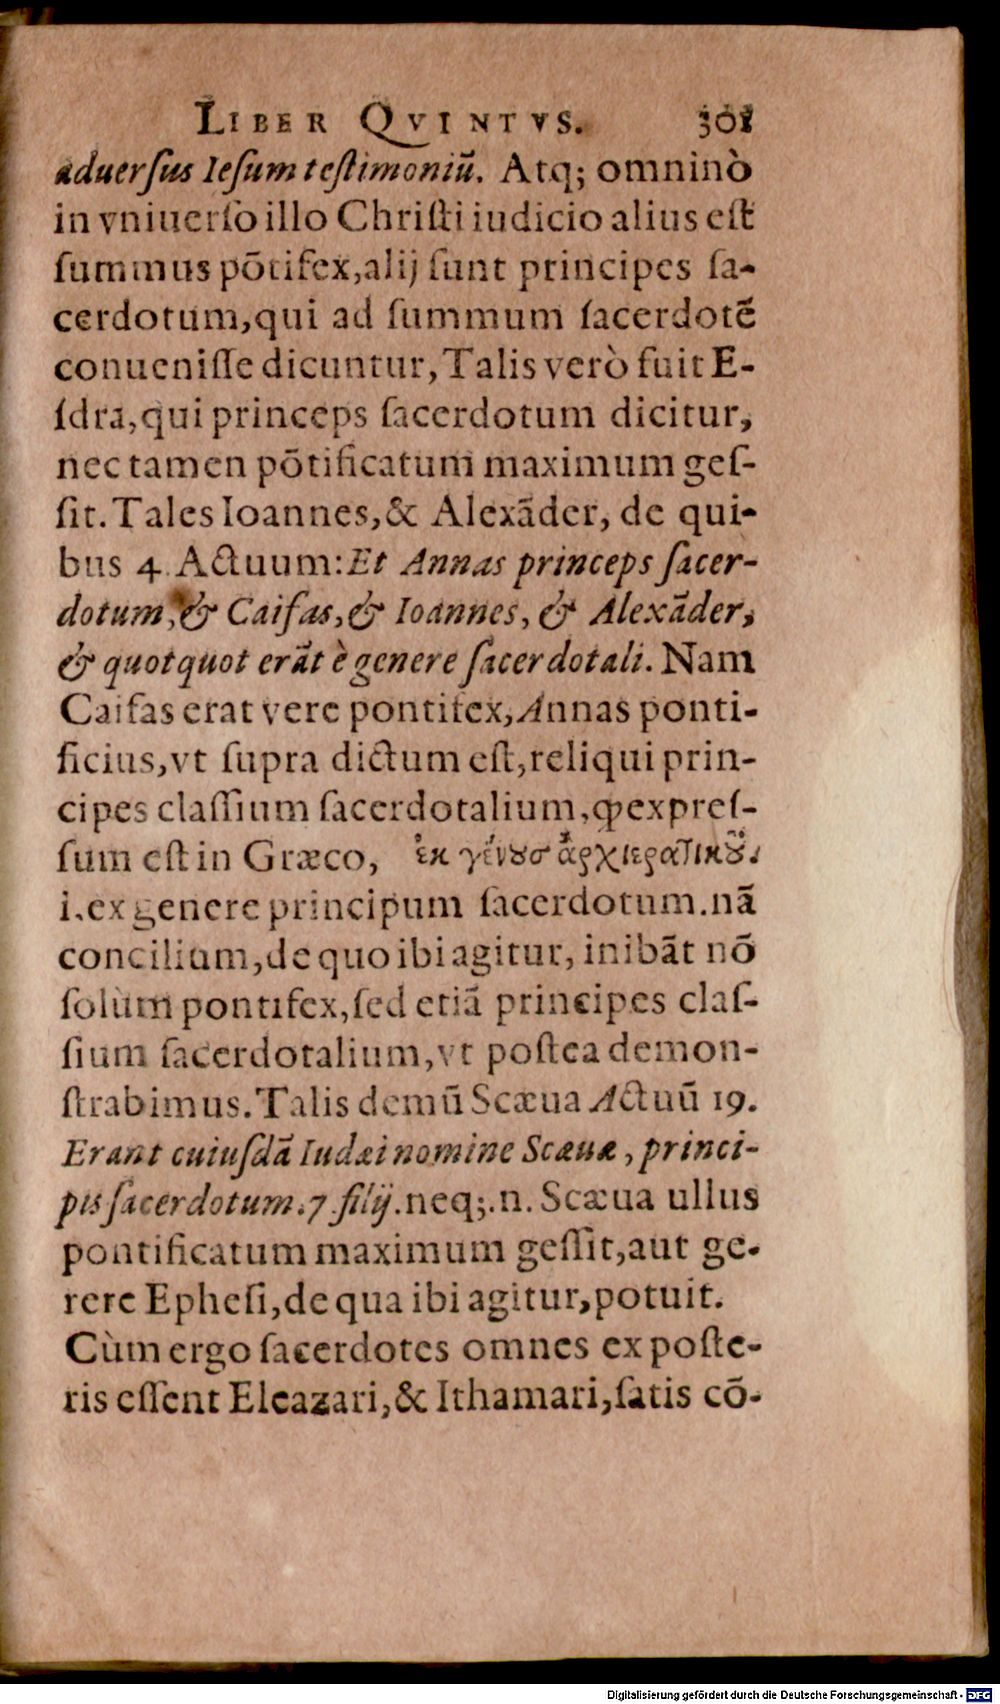 LIBER QVINTVS. 301
aduerſus Ieſum teſtimoniũ. Atq; omninò
in vniuerſo illo Chriſti iudicio alius eſt
ſummus põtifex,alij ſunt principes ſa-
cerdotum,qui ad ſummum ſacerdotẽ
conueniſſe dicuntur,Talis verò fuit E-
ſdra,qui princeps ſacerdotum dicitur,
nec tamen põtificatum maximum geſ-
ſit.Tales Ioannes,& Alexãder, de qui-
bus 4 Actuum:Et Annas princeps ſacer-
dotum,& Caifas,& Ioannes, & Alexãder,
& quotquot erãt è genere ſacerdotali. Nam
Caifas erat vere pontifex,Annas ponti-
ficius,vt ſupra dictum eſt,reliqui prin-
cipes claſſium ſacerdotalium,ꝙ expreſ-
ſum eſt in Græco, ἐκ γένουσ ἀρχιερατικοῦ.
i.ex genere principum ſacerdotum.nã
concilium,de quo ibi agitur, inibãt nõ
ſolùm pontifex,ſed etiã principes claſ-
ſium ſacerdotalium,vt poſtea demon-
ſtrabimus.Talis demũ Scæua Actuũ 19.
Erant cuiuſdã Iudæi nomine Scæuæ, princi-
pis ſacerdotum.7.filij.neq;.n. Scæua ullus
pontificatum maximum geſſit,aut ge-
rere Epheſi,de qua ibi agitur,potuit.
Cùm ergo ſacerdotes omnes ex poſte-
ris eſſent Eleazari,& Ithamari,ſatis cõ-
Digitalisierung gefördert durch die Deutsche Forschungsgemeinschaft - DFG